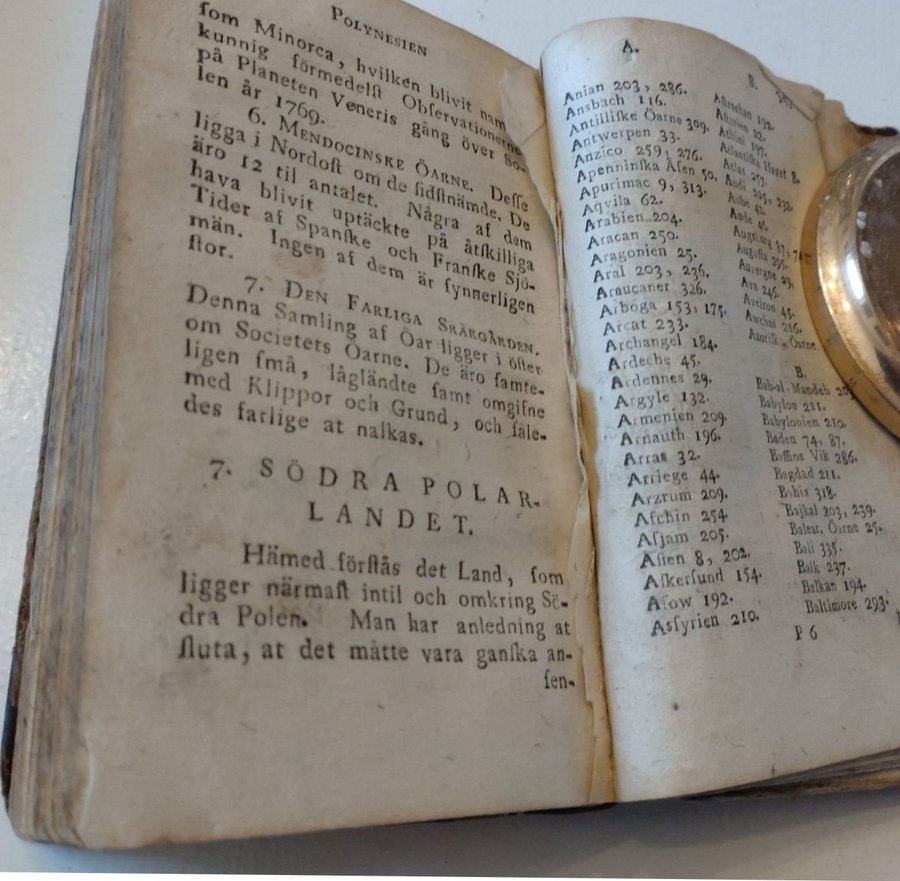 POLYNESIEN
ſom Minorca, hvilken blivit nam
kunnig förmedelſt Obſervationerne
på Planeten Veneris gång över So-
len år 1769.
6. MENDOCINSKE ÖARNE. Deſſe
ligga i Nordoſt om de ſidſtnämde. De
äro 12 til antalet. Några af dem
hava blivit uptäckte på åtſkilliga
Tider af Spanſke och Franſke Sjö-
män. Ingen af dem är ſynnerligen
ſtor.
7. DEN FARLIGA SKÄRGÅRDEN.
Denna Samling af Öar ligger i öſter
om Societets Öarne. De äro ſamte-
ligen ſmå, lågländte ſamt omgifne
med Klippor och Grund, och ſåle-
des farlige at nalkas.
7. SÖDRA POLAR-
LANDET.
Hämed förſtås det Land, ſom
ligger närmaſt intil och omkring Sö-
dra Polen. Man har anledning at
ſluta, at det måtte vara ganſka an-
ſen-
A.
Anian 203, 286.
Ansbach 116.
Antilliſke Öarne 309.
Antwerpen 33.
Anzico 259, 276.
Apenninſka Åſen 50.
Apurimac 9, 313.
Aqvila 62.
Arabien 204.
Aracan 250.
Aragonien 25.
Aral 203, 236.
Araucaner 326.
Arboga 153, 175.
Arcat 233.
Archangel 184.
Ardeche 45.
Ardennes 29.
Argyle 132.
Armenien 209.
Arnauth 196.
Arras 32.
Arriege 44.
Arzrum 209.
Aſchin 254
Aſjam 205.
Aſien 8, 202.
Aſkerſund 154.
Aſow 192.
Asſyrien 210.
B.
Aſtrachan 192.
Aſturien 22.
Athini 197.
Atlantiſka Hafvet 8.
Atlas 257.
Audi 205, 232.
Aube 42.
Aude 45.
Augsburg 87,
Auguſta 295.
Auvergne 29.
Ava 246.
Aveiron 45.
Awchas 216.
Azoriſke Öarne
B.
Bab-al-Mandeb
Babylon 211.
Babylonien 210.
Baden 74, 87.
Baffins Vik 286.
Bagdad 211.
Bahia 318.
Bajkal 203, 239.
Balear. Öarne 25.
Bali 335.
Balk 237.
Balkan 194.
Baltimore 293.
P 6